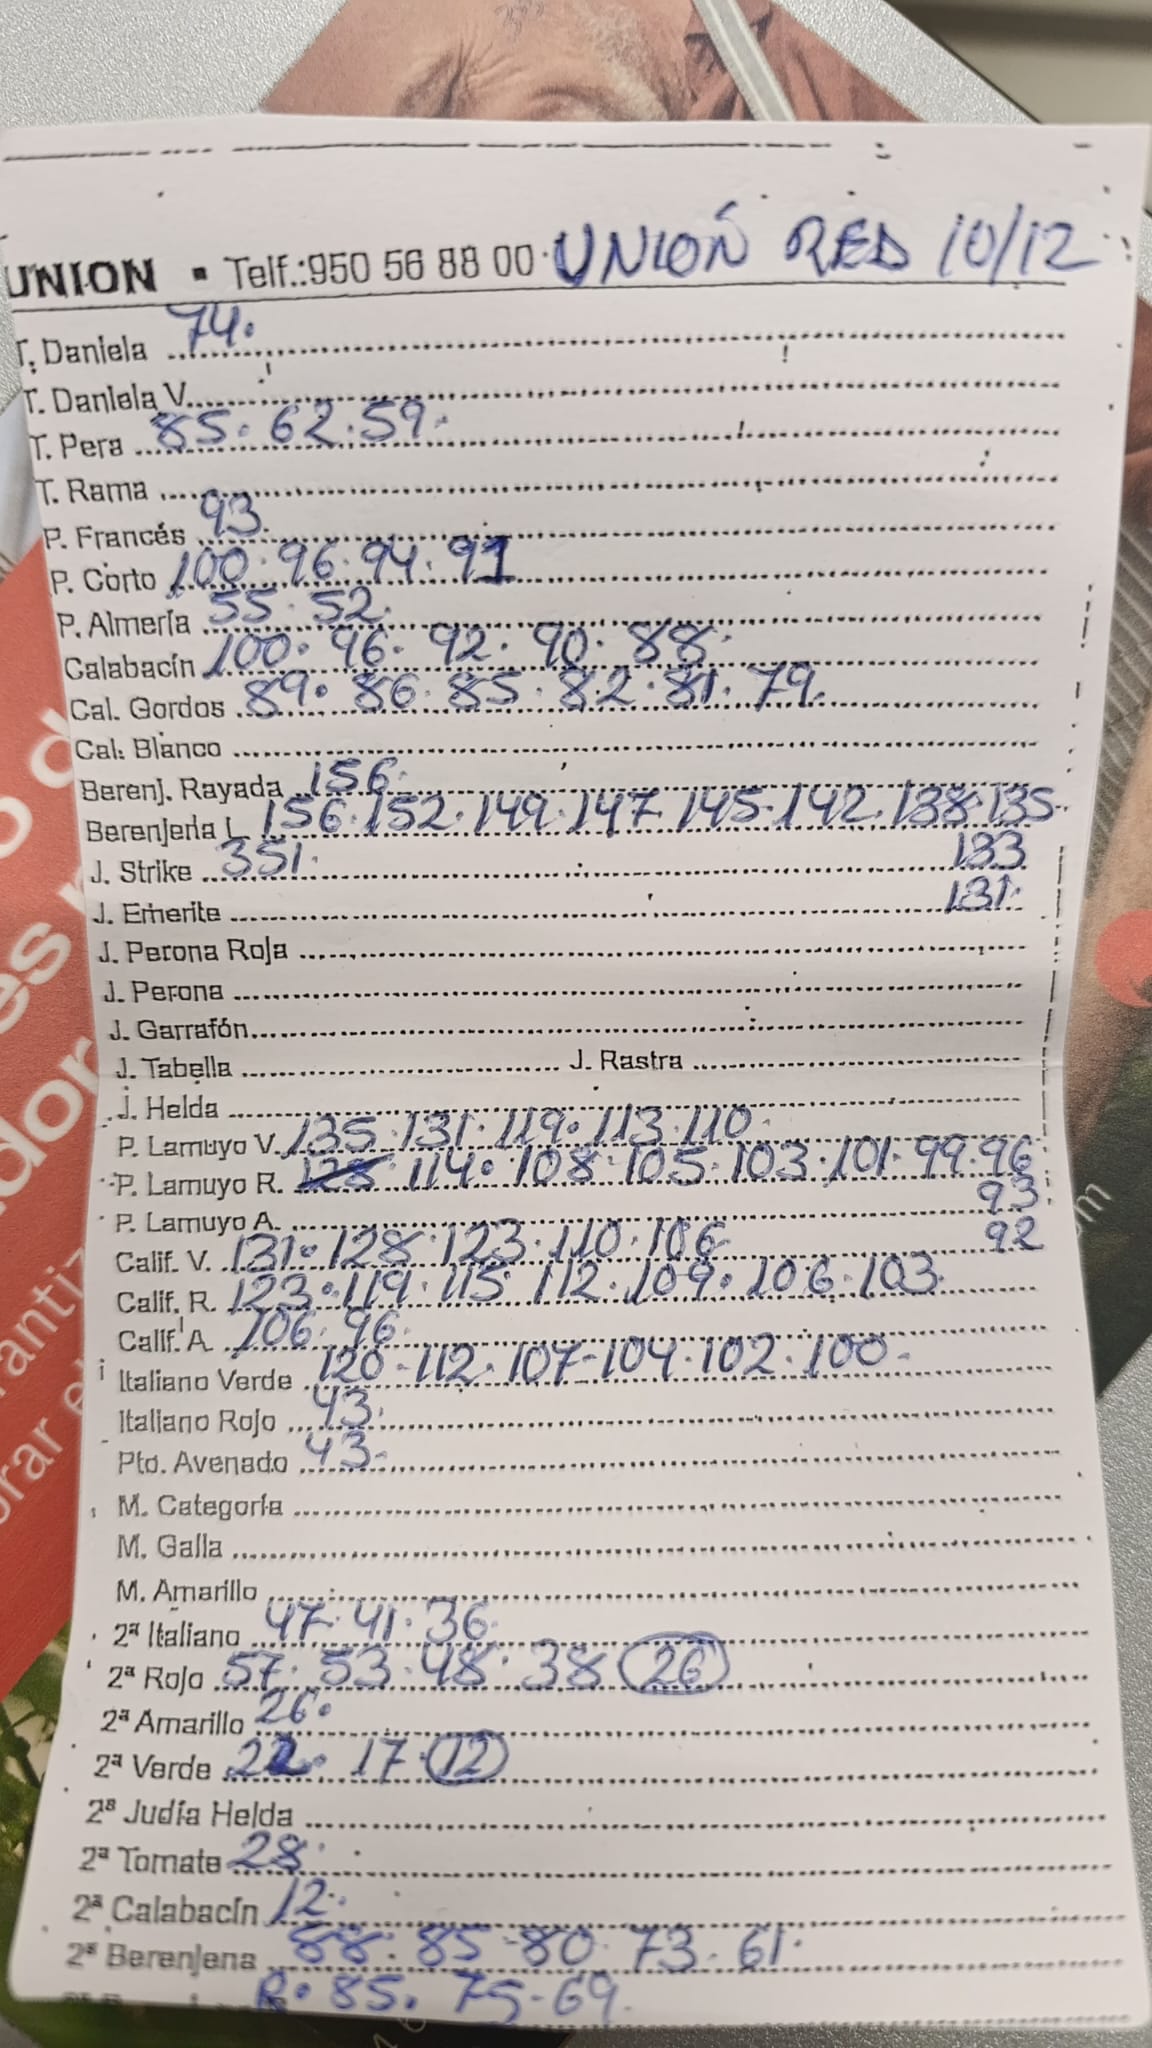 UNION ▪ Telf.:950 56 88 00 UNIÓN RED 10/12
T. Daniela 74.
T. Daniela V.
T. Pera 85. 62. 59.
T. Rama
P. Francés 93.
P. Corto 100. 96. 94. 91
P. Almería 55. 52.
Calabacín 100. 96. 92. 90. 88.
Cal. Gordos 89. 86. 85. 82. 81. 79.
Cal. Blanco
Berenj. Rayada 156.
Berenjena L 156. 152. 149. 147. 145. 142. 138. 135.
J. Strike 351. 133
J. Emerite 131.
J. Perona Roja
J. Perona
J. Garrafón
J. Tabella J. Rastra
J. Helda
P. Lamuyo V. 135. 131. 119. 113. 110.
P. Lamuyo R. 128 114. 108. 105. 103. 101. 99. 96
93
P. Lamuyo A. 92
Calif. V. 131. 128. 123. 110. 106
Calif. R. 123. 119. 115. 112. 109. 106. 103.
Calif. A. 106. 96.
Italiano Verde 120-112. 107-104. 102. 100.
Italiano Rojo 43.
Pto. Avenado 43.
M. Categoría
M. Galla
M. Amarillo
2ª Italiano 47. 41. 36.
2ª Rojo 57. 53. 48. 38 26
2ª Amarillo 26.
2ª Verde 22. 17. 12
2ª Judía Helda
2ª Tomate 28.
2ª Calabacín 12.
2ª Berenjena 88. 85-80. 73. 61.
R. 85. 75-69.